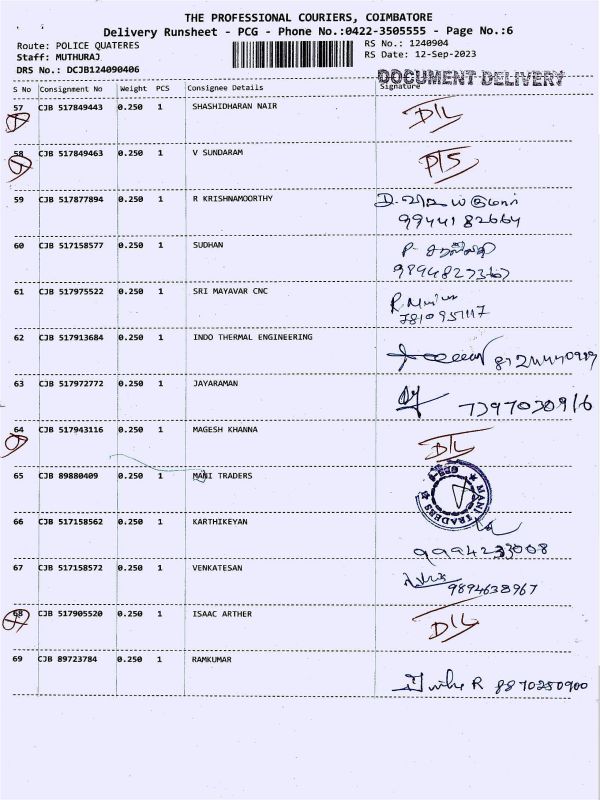 THE PROFESSIONAL COURIERS, COIMBATORE
Delivery Runsheet - PCG - Phone No.:0422-3505555 - Page No.:6
Route: POLICE QUATERES
RS No.: 1240904
Staff: MUTHURAJ
RS Date: 12-Sep-2023
DRS No.: DCJB124090406
DOCUMENT DELIVERY
S No Consignment No Weight PCS Consignee Details Signature
57 CJB 517849443 0.250 1 SHASHIDHARAN NAIR D/L
58 CJB 517849463 0.250 1 V SUNDARAM P/S
59 CJB 517877894 0.250 1 R KRISHNAMOORTHY
9944182664
60 CJB 517158577 0.250 1 SUDHAN
9894827367
61 CJB 517975522 0.250 1 SRI MAYAVAR CNC
7810957117
62 CJB 517913684 0.250 1 INDO THERMAL ENGINEERING
63 CJB 517972772 0.250 1 JAYARAMAN
7397030916
64 CJB 517943116 0.250 1 MAGESH KHANNA D/L
65 CJB 89880409 0.250 1 MANI TRADERS
MANI TRADERS
66 CJB 517158562 0.250 1 KARTHIKEYAN
9994233008
67 CJB 517158572 0.250 1 VENKATESAN
9894638967
68 CJB 517905520 0.250 1 ISAAC ARTHER D/L
69 CJB 89723784 0.250 1 RAMKUMAR
R 8870250900